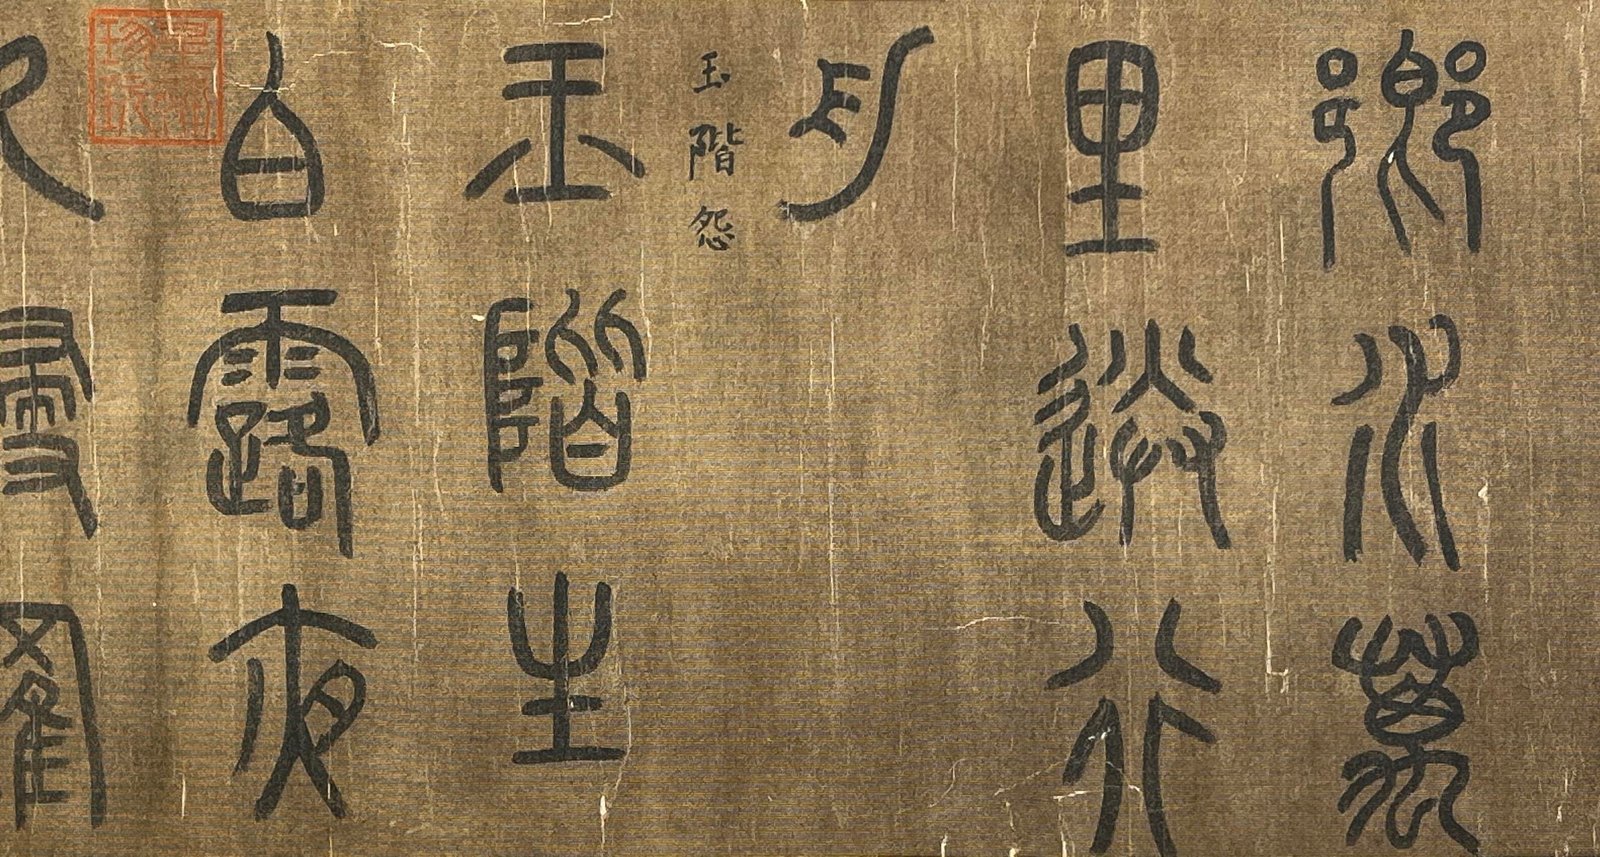 鄉水萬
里送行
舟
玉階怨
玉階生
白露夜
久侵羅